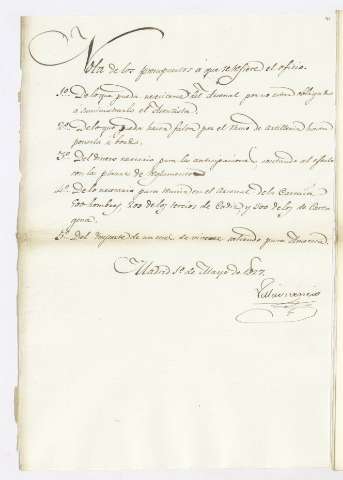 Nota de los presupuestos á que se refiere el oficio.
1º. De lo que pueda necesitarse del Arsenal por no estar obligado
a suministrarlo el Asentista
2º. De lo que pueda hacer falta por el Ramo de Artilleria hasta
ponerla á bordo.
3º. Del dinero necesario para las anticipaciones, contando al efecto
con la plaza de Reglamento
4º. De lo necesario para reunir en el Arsenal de la Carraca
500 hombres, 200 de los tercios de Cadiz y 200 de los de Carta
gena.
5º. Del importe de un mes
Madrid 1º de Mayo de 1827.